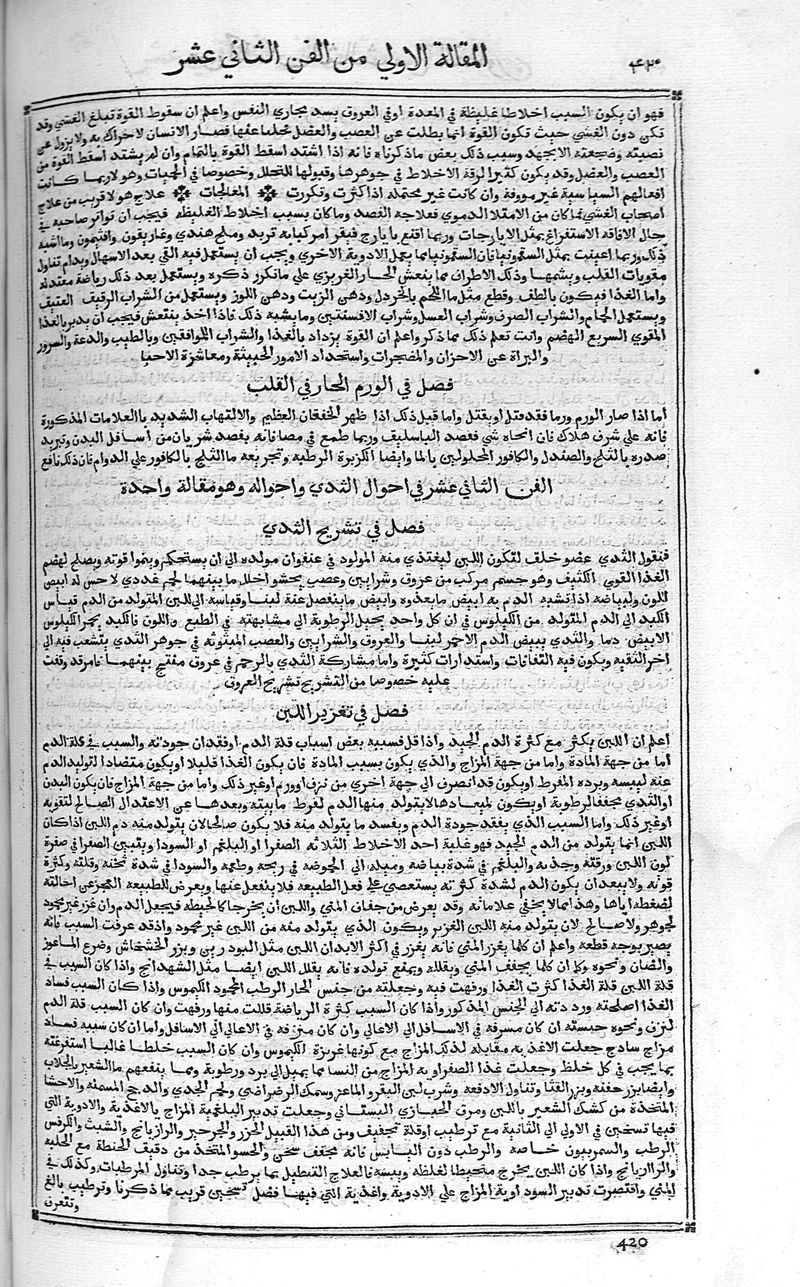 المقالة الاولي من الفن الثاني عشر
٤٢٠
فهو ان يكون السبب اخلاطا غليظة في المعدة اوفي العروق يسد مجاري النفس واعلم ان سقوط القوة تبلغ الغشي وقد
تكن دون الغشي حيث تكون القوة انما بطلت عن العصب والعضل تحلبا عنها فصار الانسان لاحراك به ولا يزول عن
نصبته وضجعته الابجهد وسبب ذلك بعض ماذكرناه فانه اذا اشتد اسقط القوة بالتمام وان لم يشتد اسقط القوة من
العصب والعضل وقد يكون كثيرا لرقة الاخلاط في جوهرها وقبولها للتحلل وخصوصا في الحميات وهولا ربما كانت
افعالهم السياسية غير مووفة وان كانت غير محتملة اذا كثرت وتكررت المعالجات علاج هولا قريب من علاج
اصحاب الغشي فما كان من الامتلا الدموي فعلاجه الفصد وما كان بسبب اخلاط الغليظة فيجب ان تواتر صاحبه في
حال الافاقة الاستفراغ بمثل الايارجات وربما اقنع بايارج فيقر امركبابه تربد وملح هندي وغاريقون وافتيمون وما اشبه
ذلك وربما اعينت بمثل السقمونيا فان السقمونيا مما يعمل الادوية الاخري ويجب ان يستعمل فيه التي بعد الاسهال ويدام تناول
مقويات القلب ويشمها وذلك الاطراف مما ينعش الحار الغريزي علي ماتكرر ذكره ويستعمل بعد ذلك رياضة معتدلة
واما الغذا فيكون بالطف وقطع مثل ما الحمص بالخردل ودهن الزيت ودهن اللوز ويستعمل من الشراب الرقيف العتيق
ويستعمل الحمام والشراب الصرف وشراب العسل وشراب الافسنتين وما يشبه ذلك فاذا اخذ ينتعش فيجب ان يدبر بالغذا
المقوي السريع الهضم وانت تعلم ذلك مما ذكر واعلم ان القوة يزداد بالغذا والشراب الموافقين وبالطيب والدعة والسرور
والبراة عن الاحزان والمضجرات واستجداد الامور الحبيبة ومعاشرة الاحبا
فصل في الورم الحار في القلب
اما اذا صار الورم ورما فقد قتل او يقتل واما قبل ذلك اذا ظهر الخفقان العظيم والالتهاب الشديد بالعلامات المذكورة
فانه علي شرف هلاك فان انجاه شي ففصد الباسليق وربما طمع في مصافاته بفصد شريان من اسافل البدن وتبريد
صدره بالثلج والصندل والكافور المحلولين بالما وايضا الكزبرة الرطبة وتجريعه ما الثلج بالكافور علي الدوام فان ذلك نافع
الفن الثاني عشر في احوال الثدي واحواله وهو مقالة واحدة
فصل في تشريح الثدي
فنقول الثدي عضو خلق لتكون اللبن ليغتذي منه المولود في عنفوان مولده الي ان يستحكم وينموا قوته ويصلح لهضم
الغذا القوي الكثيف وهو جسم مركب من عروق وشرايين وعصب يحشو اخلل ما بينهما لحم غددي لا حس له ابيض
اللون ولبياضه اذا تشبه الدم به ابيض ما يغذوه وابيض ما ينفصل عنه لبنا وقياسه الي اللبن المتولد من الدم قياس
الكبد الي الدم المتولد من الكيلوس في ان كل واحد يحيل الرطوبة الي مشابهته في الطبع واللون فالكبد يحمر الكيلوس
الابيض دما والثدي يبيض الدم الاحمر لبنا والعروق والشرايين والعصب المبثوثه في جوهر الثدي يتشعب فيه الي
اخر الثقبة ويكون فيه التفافات واستدارات كثيرة واما مشاركة الثدي بالرحم في عروق منتفخ بينهما فامر قد وقفت
عليه خصوصا من التشريح تشريح العروق
فصل في تغزير اللبن
اعلم ان اللبن يكثر مع كثرة الدم الجيد واذا قل فسببه بعض اسباب قلة الدم او فقدان جودته والسبب في قلة الدم
اما من جهة المادة واما من جهة المزاج والذي يكون بسبب المادة فان يكون الغذا قليلا او يكون متضادا لتوليد الدم
عنه ليبسه وبرده المفرط او يكون قد انصرف الي جهة اخري من نزف او ورم او غير ذلك واما من جهة المزاج فان يكون البدن
او الثدي مجففا لرطوبة او يكون لميعاد هالايتولد منها الدم لفرط مايته وبعدها عن الاعتدال الصالح لتقويه
او غير ذلك واما السبب الذي يفقد جودة الدم ويفسد ما يتولد منه فلا يكون صالحا لان يتولد منه دم اللبن اذا كان
اللبن انما يتولد من الدم الجيد فهو غلبة احد الاخلاط الثلاثه الصفرا او البلغم او السودا ويتبين الصفرا في صفرة
لون اللبن ورقته وحدته والبلغم في شدة بياضه وميله الي الحموضة في ريحه وطعمه والسودا في شدة ثخنه وقلته وكثرة
قوته ولا يبعد ان يكون الدم لشدة كثرته يستعصي علي فعل الطبيعه فلا ينفعل عنها ويعرض للطبيعه العجز عن احالته
لضغطه اياها وهذا مما لا يخفي علاماته وقد يعرض من جفاف المني واللبن ان يخرجا كالخيط فيجعل الدم وان غزر غير محمود
الجوهر ولا صالح لان يتولد منه اللبن الغزير ويكون الذي يتولد منه من اللبن غير محمود واذ قد عرفت السبب فانه
يصير بوجه قطعه واعلم ان كلما يغزر المني فانه يغزر في اكثر الابدان اللبن مثل البودرين وبزر الخشخاش وضرع الماعوز
والضان ونحوه وكما ان كلما يجفف المني ويقلله ويمنع تولده فانه يقلل اللبن ايضا مثل الشهدانج واذا كان السبب في
قلة اللبن قلة الغذا كثرت الغذا ورفهت فيه وجعلته من جنس الحار الرطب المحمود الكيموس واذا كان السبب فساد
الغذا اصلحته ورددته الي الجنس المذكور واذا كان السبب كثرة الرياضة قللت منها ورفهت وان كان السبب قلة الدم
لنزف ونحوه حبسته ان كان مسرفه في الاسافل الي الاعالي وان كان منزفه في الاعالي الي الاسافل واما ان كان سببه فساد
مزاج سادج جعلت الاغذيه مقابله لذلك المزاج مع كونها غزيرة الكيموس وان كان السبب خلطا غالبا استفرغته
بما يجب في كل خلط وجعلت غذا الصفراويه المزاج من النسا مما يميل الي برد ورطوبة ومما ينفعهم ما الشعير بالجلاب
وايضا بزر حقنه وبزر القثا وتناول الادمغة وشرب لبن البقر والماعز وسمك الرضراضي ولحم الجدي والدجج المسمنه والاحسا
المتخذة من كشك الشعير باللبن ومرق الخبازي البستاني وجعلت تدبير البلغمية المزاج بالاغذية والادوية التي
فيها تسخين في الاولي الي الثانية مع ترطيب اوقلة تجفيف ومن هذا القبيل الجزر والجرجير والرازيانج والشبث والكرفس
الرطب والسمرنيون خاصه والرطب دون اليابس فانه مجفف سخن والحسو المتخذ من دقيق الحنطة مع الحلبه
والرازيانج واذا كان اللبن يخرج متخيطا لغلظه ويبسه فالعلاج التنطيل بما يرطب جدا وتناول المرطبات وكذلك في
المني واقتصرت تدبير السوداوية المزاج علي الادوية واغذية التي فيها فضل تسخين قريب مما ذكرنا وترطيب بالغ
وتتعرف
420